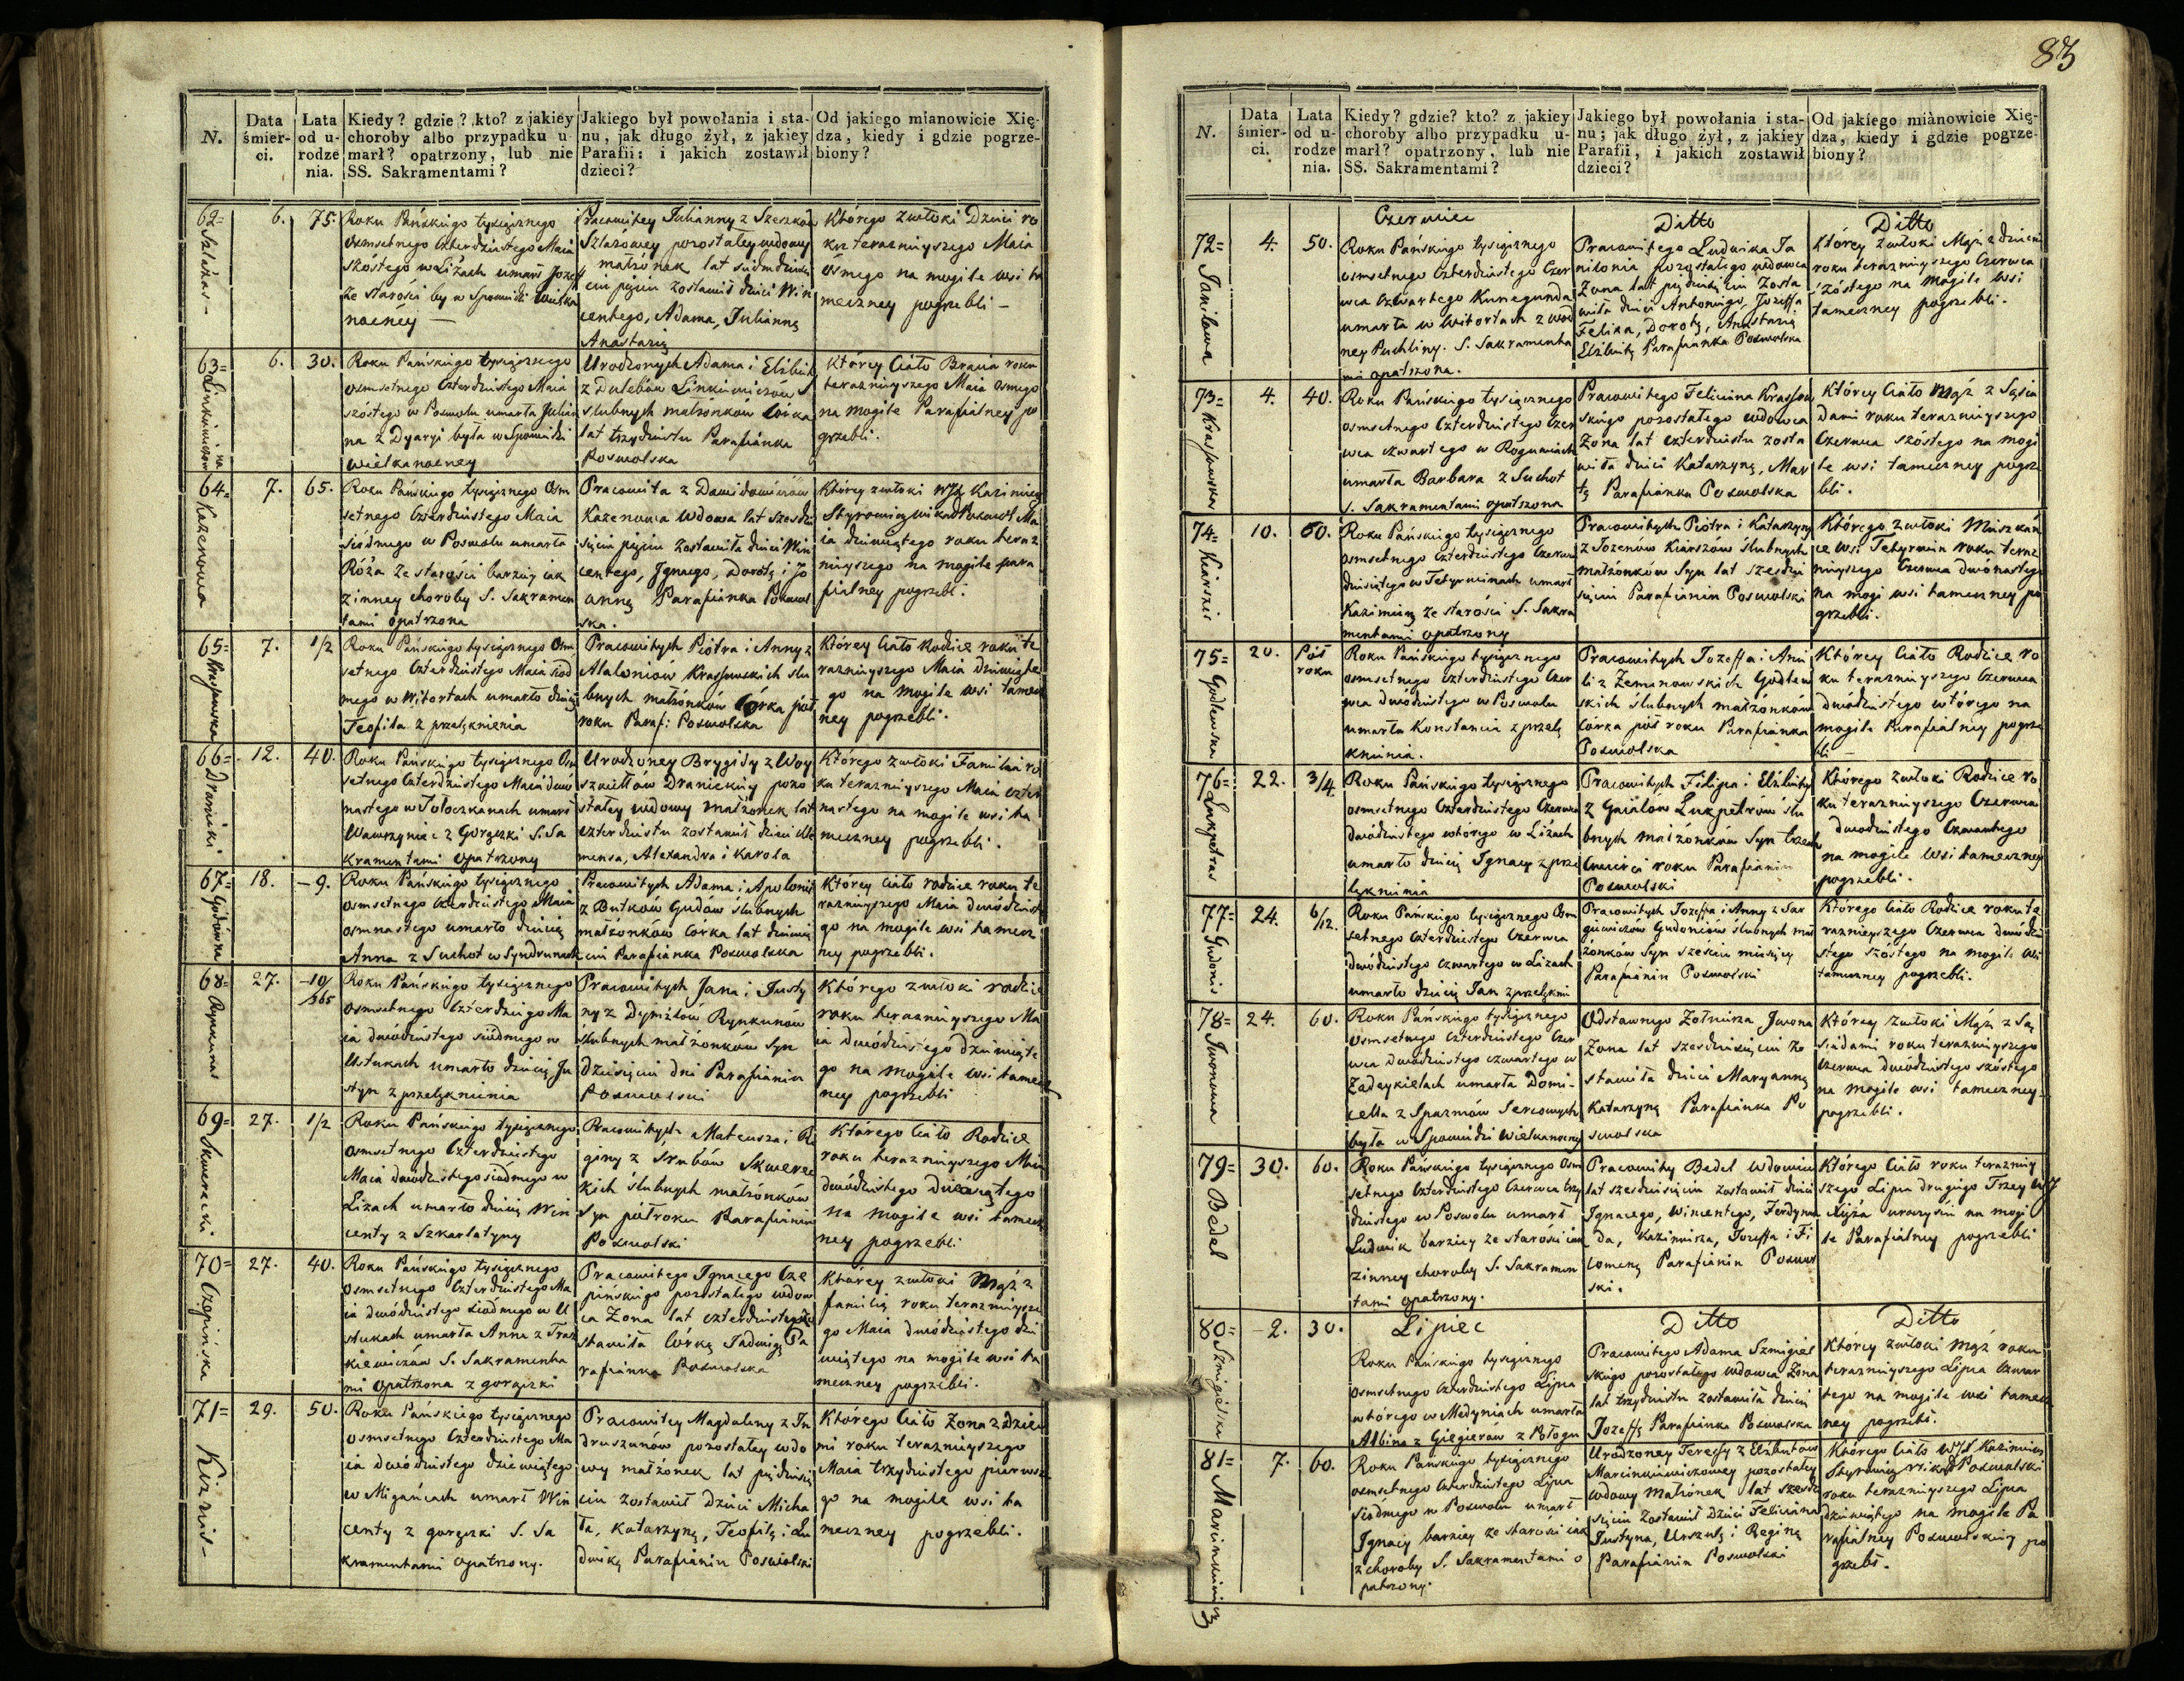 N.
Data śmier- ci.
Lata od u- rodze nia.
Kiedy? gdzie? kto? z jakiey
choroby albo przypadku u-
marł? opatrzony, lub nie
SS. Sakramentami?
Jakiego był powołania i sta-
nu, jak długo żył, z jakiey
Parafii: i jakich zostawił
dzieci?
Od jakiego mianowicie Xię-
dza, kiedy i gdzie pogrze-
biony?
62=
6.
75.
Roku Pańskiego tysiącznego
osmsetnego czterdziestego Maia
szóstego w Liżach umarł Jozef
ze starości był w Spowiedzi Wielka
nocney —
Pracowitey Julianny z
pozostałey wdowy
małżonek lat siedmdziesię
ciu pięciu zostawił dzieci Win
centego, Adama, Juliannę
Anastazię
Którego zwłoki Dzieci ro
ku teraznieyszego Maia
ósmego na mogile wsi ta
meczney pogrzebli —
63=
6.
30.
Roku Pańskiego tysiącznego
osmsetnego czterdziestego Maia
szóstego w Poswolu umarła Julian
na z Dyaryi była w Spowiedzi
wielkanocney
Urodzonych Adama i Elżbiety
z Dulebów Linkiewiczów
slubnych małżonków Córka
lat trzydziestu Parafianka
Poswolska
Którey Ciało Bracia roku
teraznieyszego Maia osmego
na mogile Parafialney po
grzebli.
64=
Kazenowa
7.
65.
Roku Pańskiego tysiącznego Osm
setnego Czterdziestego Maia
siódmego w Poswolu umarła
Róża ze starości barziey iak
z inney choroby S. Sakramen
tami opatrzona
Pracowita z Dawidowiczów
Kazenowa Wdowa lat szesdzie
sięciu pięciu zostawiła dzieci Win
centego, Ignacego, Dorotę i Jo
annę Parafianka Poswol
ska.
Którey zwłoki WJX Kazimierz
Styrowicz Wikary Poswol: Ma
ia dziewiątego roku teraz
nieyszego na mogile para
fialney pogrzebł.
65=
Krasowska
7.
1/2
Roku Pańskiego tysiącznego Osm
setnego Czterdziestego Maia siód
mego w Witortach umarło dziecię
Teofila z przelęknienia
Pracowitych Piotra i Anny z
Krasowskich slu
bnych małżonków Córka pół
roku Paraf: Poswolska
Którey Ciało Rodzice roku te
raznieyszego Maia dziewiąte
go na mogile wsi tamecz
ney pogrzebli.
66=
Dranicki
12.
40.
Roku Pańskiego tysiącznego Os
setnego Czterdziestego Maia dwu
nastego w Tołoczkanach umarł
Wawrzyniec z Gorączki S. Sa
kramentami opatrzony
Urodzoney Brygidy z Woy
szwiłłów Dranickiey pozo
stałey wdowy małżonek lat
czterdziestu zostawił dzieci Kle
mensa, Alexandra i Karola
Którego zwłoki Familia ro
ku teraznieyszego Maia czter
nastego na mogile wsi ta
meczney pogrzebli.
67=
Gudówna
18.
— 9.
Roku Pańskiego tysiącznego
osmsetnego czterdziestego Maia
osmnastego umarło dziecię
Anna z Suchot w
Pracowitych Adama i Apolonii
z Butków Gudów ślubnych
małżonków Córka lat dziewię
ciu Parafianka Poswolska
Którey Ciało rodzice roku te
raznieyszego Maia dwódzieste
go na mogile wsi tamecz
ney pogrzebli.
68=
Rynkunas
27.
10/365
Roku Pańskiego tysiącznego
osmsetnego Czterdziego Ma
ia dwódziestego siódmego w
Ustukach umarło dziecię Ju
styn z przelęknienia
Pracowitych Jana i Justy
ny z Rynkunów
ślubnych małżonków syn
dziesięciu dni Parafianin
Poswolski
Którego zwłoki rodzice
roku teraznieyszego Ma
ia dwódziestego dziewiąte
go na mogile wsi tamecz
ney pogrzebli
69=
Skwerecki.
27.
1/2
Roku Pańskiego tysiącznego
osmsetnego Czterdziestego
Maia dwódziestego siódmego w
Liżach umarło dziecię Win
centy z Szkarlatyny
Pracowitych Mateusza i Re
giny z Srubów Skwerec
kich ślubnych małżonków
Syn półroku Parafianin
Poswolski
Którego Ciało Rodzice
roku teraznieyszego Maia
dwódziestego dziewiątego
na mogile wsi tamecz
ney pogrzebli
70=
Czepińska
27.
40.
Roku Pańskiego tysiącznego
osmsetnego Czterdziestego Ma
ia dwódziestego siódmego w U
stukach umarła Anna z Trasz
kiewiczów S. Sakramenta
mi opatrzona z gorączki
Pracowitego Ignacego Cze
pińskiego pozostałego wdow
ca Zona lat czterdziestu zo
stawiła Córkę Jadwigę Pa
rafianka Poswolska
Którey zwłoki Mąż z
familią roku teraznieysze
go Maia dwódziestego dzie
wiątego na mogile wsi ta
meczney pogrzebli.
71=
Kirnis —
29.
50.
Roku Pańskiego tysiącznego
osmsetnego Czterdziestego Ma
ia dwódziestego dziewiątego
w Migańcach umarł Win
centy z gorączki S. Sa
kramentami opatrzony.
Pracowitey Magdaleny z In
druszunów pozostałey wdo
wy małżonek lat piędziesię
ciu zostawił Dzieci Micha
ła, Katarzynę, Teofilę i Lu
dwikę Parafianin Poswolski
Którego Ciało Zona z Dzieć
mi roku teraznieyszego
Maia trzydziestego pierwsze
go na mogile wsi ta
meczney pogrzebli.
83
N.
Data śmier- ci.
Lata od u- rodze nia.
Kiedy? gdzie? kto? z jakiey
choroby albo przypadku u-
marł? opatrzony, lub nie
SS. Sakramentami?
Jakiego był powołania i sta-
nu; jak długo żył, z jakiey
Parafii, i jakich zostawił
dzieci?
Od jakiego mianowicie Xię-
dza, kiedy i gdzie pogrze-
biony?
72=
Janilowa
4.
50.
Czerwiec
Roku Pańskiego tysiącznego
osmsetnego Czterdziestego Czer
wca Czwartego Kunegunda
umarła w Witortach z wod
ney Puchliny. S. Sakramenta
mi opatrzona.
Ditto
Pracowitego Ludwika Ja
niłonia pozostałego wdowca
Zona lat piędziesięciu zosta
wiła dzieci Antoniego, Jozeffa
Felixa, Dorotę, Anastazię
Elżbietę Parafianka Poswolska
Ditto
Którey zwłoki Mąż z dziećmi
roku teraznieyszego Czerwca
szóstego na mogile wsi
tameczney pogrzebli.
73=
Krasowska
4.
40.
Roku Pańskiego tysiącznego
osmsetnego Czterdziestego Czer
wca czwartego w Roguniach
umarła Barbara z Suchot
S. Sakramentami opatrzona
Pracowitego Felicina Krassow
skiego pozostałego wdowca
Zona lat czterdziestu zosta
wiła dzieci Katarzynę, Mar
tę Parafianka Poswolska
Którey Ciało Mąż z Sąsia
dami roku teraznieyszego
Czerwca szóstego na mogi
le wsi tameczney pogrze
bli.
74=
Kiarsis
10.
60.
Roku Pańskiego tysiącznego
osmsetnego czterdziestego Czerwca
dziesiątego w Tetyrwinach umarł
Kazimierz ze starości S. Sakra
mentami opatrzony
Pracowitych Piotra i Katarzyny
z Jozenów Kiarszów slubnych
małżonków Syn lat szesdzie
sięciu Parafianin Poswolski
Którego zwłoki Mieszkań
ce wsi Tetyrwin roku teraz
nieyszego Czerwca dwónastego
na mogi wsi tameczney po
grzebli.
75=
Godlewska
20.
Pół roku
Roku Pańskiego tysiącznego
osmsetnego Czterdziestego Czer
wca dwódziestego w Poswolu
umarła Konstancia z przelę
knienia.
Pracowitych Jozeffa i Anie
li z Zemanowskich Godlew
skich slubnych małżonków
Córka pół roku Parafianka
Poswolska
Którey Ciało Rodzice ro
ku teraznieyszego Czerwca
dwódziestego wtórego na
mogile Parafialney pogrze
bli —
76=
Lukpetras
22.
3/4.
Roku Pańskiego tysiącznego
osmsetnego Czterdziestego Czerwca
dwódziestego wtorego w Liżach
umarło dziecię Ignacy z prze
lęknienia
Pracowitych Filipa i Elżbiety
z Gaialow Lukpetrow ślu
bnych małżonków Syn trzech
Cwierci roku Parafianin
Poswolski
Którego zwłoki Rodzice ro
ku teraznieyszego Czerwca
dwodziestego Czwartego
na mogile wsi tameczney
pogrzebli.
77=
Gudonis
24.
6/12.
Roku Pańskiego tysiącznego Osm
setnego Czterdziestego Czerwca
dwódziestego czwartego w Liżach
umarło dziecię Jan z przelęknie
Pracowitych Jozeffa i Anny z Sar
giewiczów Gudoniów slubnych mał
żonków Syn sześciu miesięcy
Parafianin Poswolski
Którego Ciało Rodzice roku te
raznieyszego Czerwca dwódzie
stego szóstego na mogile wsi
tameczney pogrzebli.
78=
Iwonowa
24.
60.
Roku Pańskiego tysiącznego
osmsetnego Czterdziestego Czer
wca dwodziestego czwartego w
Zadeykielach umarła Domi-
cella z Spazmów Sercowych
była w Spowiedzi Wielkanocney
Odstawnego Zołnierza Iwona
Zona lat szesdziesięciu zo
stawiła dzieci Maryannę
Katarzynę Parafianka Po
swolska
Którey zwłoki Mąż z Są
siadami roku teraznieyszego
Czerwca dwódziestego szóstego
na mogile wsi tameczney
pogrzebli.
79=
Bedel
30.
60.
Roku Pańskiego tysiącznego Osm
setnego Czterdziestego Czerwca trzy
dziestego w Poswolu umarł
Ludwik barziey ze starości iak
z inney choroby S. Sakramen
tami opatrzony.
Pracowity Bedel Wdowiec
lat szesdziesięciu zostawił dzieci
Ignacego, Wincentego, Ferdynan
da, Kazimierza, Jozeffa i Fi
lomenę Parafianin Poswol
ski.
Którego Ciało roku terazniey
szego Lipca drugiego Trzey WJ
Xięża uroczyscie na mogi
le Parafialney pogrzebli
80=
2.
30.
Lipiec
Roku Pańskiego tysiącznego
osmsetnego czterdziestego Lipca
wtórego w Medyniach umarła
Albina z Giegieraw z Połogu
Ditto
Pracowitego Adama Szmigiel
skiego pozostałego wdowca Zona
lat trzydziestu zostawiła dziecię
Jozeffę Parafianka Poswolska
Ditto
Którey zwłoki Mąż roku
teraznieyszego Lipca czwar
tego na mogile wsi tamecz
ney pogrzebł.
81=
Marcinkiewicz
7.
60.
Roku Pańskiego tysiącznego
osmsetnego Czterdziestego Lipca
siódmego w Poswolu umarł
Ignacy barziey ze starości iak
z choroby S. Sakramentami o
patrzony.
Urodzoney Teressy z Elzbutow
Marcinkiewiczowey pozostałey
wdowy małżonek lat szesdzie
sięciu zostawił dzieci Feliciana
Justyna, Urszulę i Reginę
Parafianin Poswolski
Którego Ciało WJX Kazimierz
Styrowicz Wikary Poswolski
roku teraznieyszego Lipca
dziewiątego na mogile Pa
rafialney Poswolskiey po
grzebł.